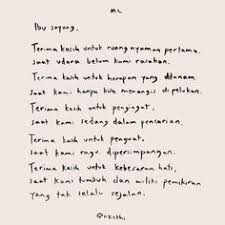 Ibu sayang,
Terima kasih untuk ruang nyaman pertama,
saat udara belum kami rasakan.
Terima kasih untuk harapan yang ditanam
saat kami hanya bisa menangis dipelukan.
Terima kasih untuk pengingat,
saat kami sedang dalam pencarian.
Terima kasih untuk penguat,
saat kami ragu dipersimpangan.
Terima kasih untuk kebesaran hati,
saat kami tumbuh dan miliki pemikiran
yang tak selalu sejalan.
@nkcthi